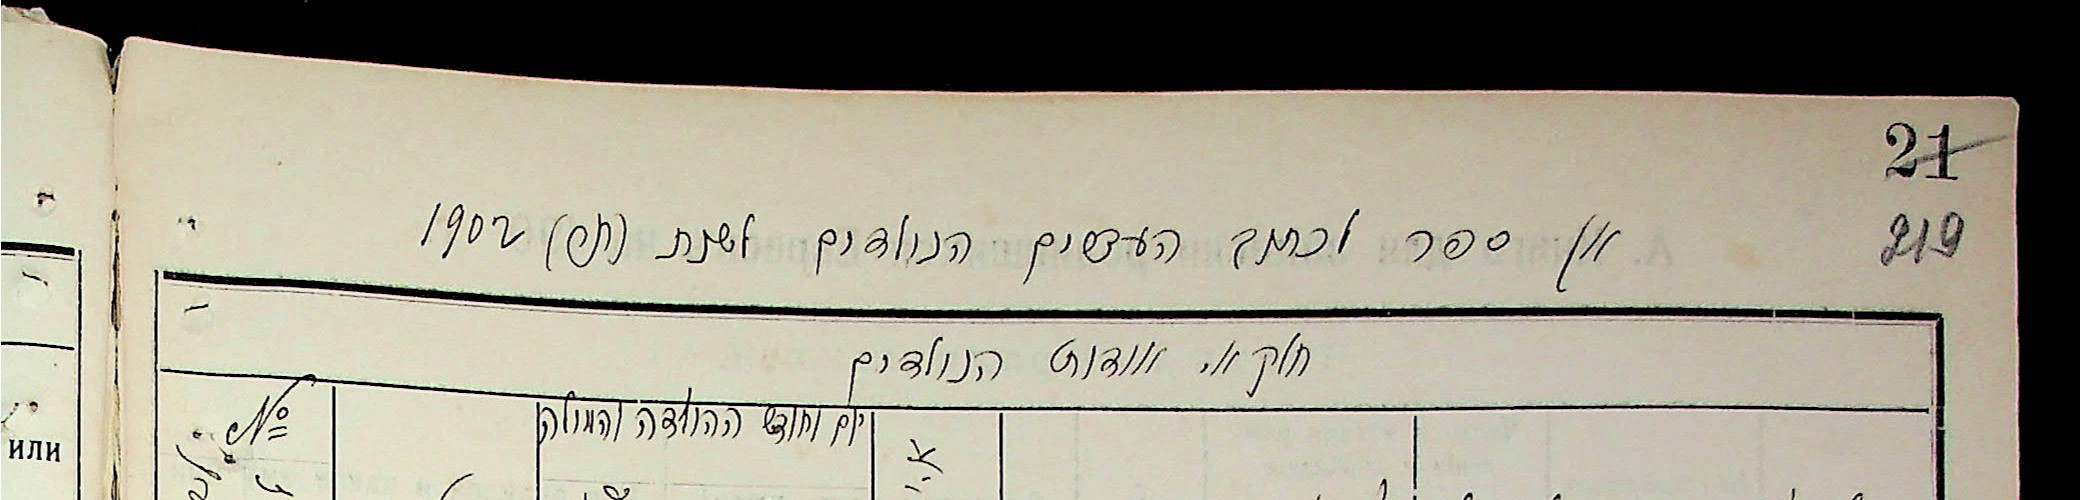 21
219
א) ספר לכתוב העברים הנולדים לשנת 1902
חלק א׳ אודות הנולדים
יום וחודש ההולדה והמילה
№
или